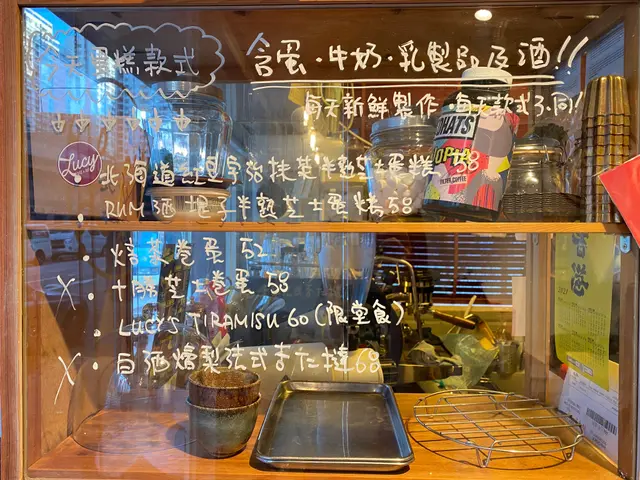 今天蛋糕款式
含蛋·牛奶·乳製品及酒!!
每天新鮮製作·每天款式不同!
Lucy
·北海道紅豆宇治抹茶半熟芝士蛋糕58
·RUM酒提子半熟芝士蛋糕58
·焙茶卷蛋 52
X·十勝芝士卷蛋 58
·LUCY'S TIRAMISU 60 (限堂食)
X·白酒燴梨法式 撻68
OHATS